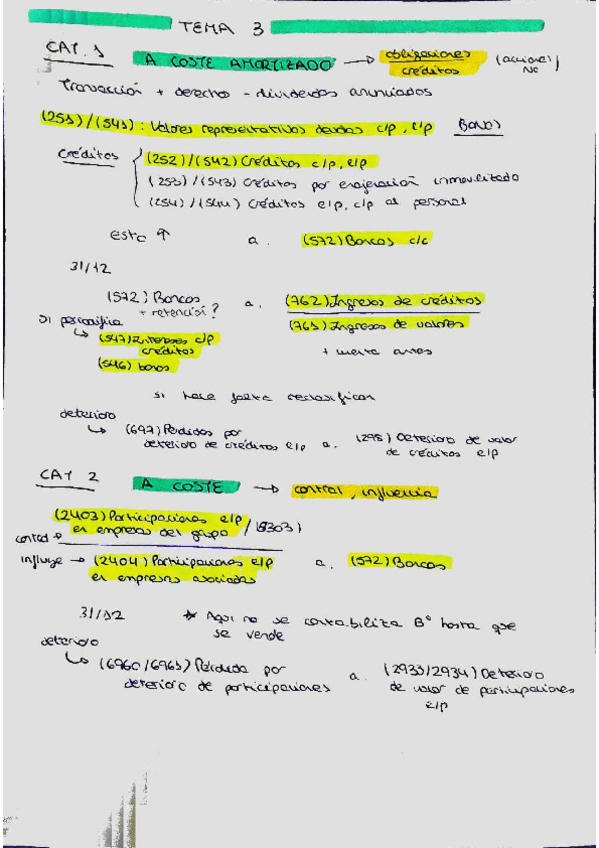 TEMA 3
CAT. 1 A COSTE AMORTIZADO → obligaciones créditos (acciones) No
Transacción + derechos - dividendos anunciados
(251)/(541): Valores representativos deudas c/p, l/p Bonos
Créditos (252)/(542) Créditos c/p, l/p
(253)/(543) Créditos por enajenación inmovilizado
(254)/(544) Créditos l/p, c/p al personal
esto ↑ a. (572) Bancos c/c
31/12
(572) Bancos a. (762) Ingresos de créditos
+ retención?
(761) Ingresos de valores
Si periodifica
↳ (547) Intereses c/p créditos + venta antes
(546) bonos
si hace falta reclasificar
deterioro
↳ (697) Pérdidas por deterioro de créditos l/p a. (298) Deterioro de valor de créditos l/p
CAT 2 A COSTE → control, influencia
(2403) Participaciones l/p en empresas del grupo / (5303)
control →
influye → (2404) Participaciones l/p en empresas asociadas a. (572) Bancos
31/12 * Aquí no se contabiliza Bº hasta que se vende
deterioro
↳ (6960/6961) Pérdida por deterioro de participaciones a. (2933/2934) Deterioro de valor de participaciones l/p